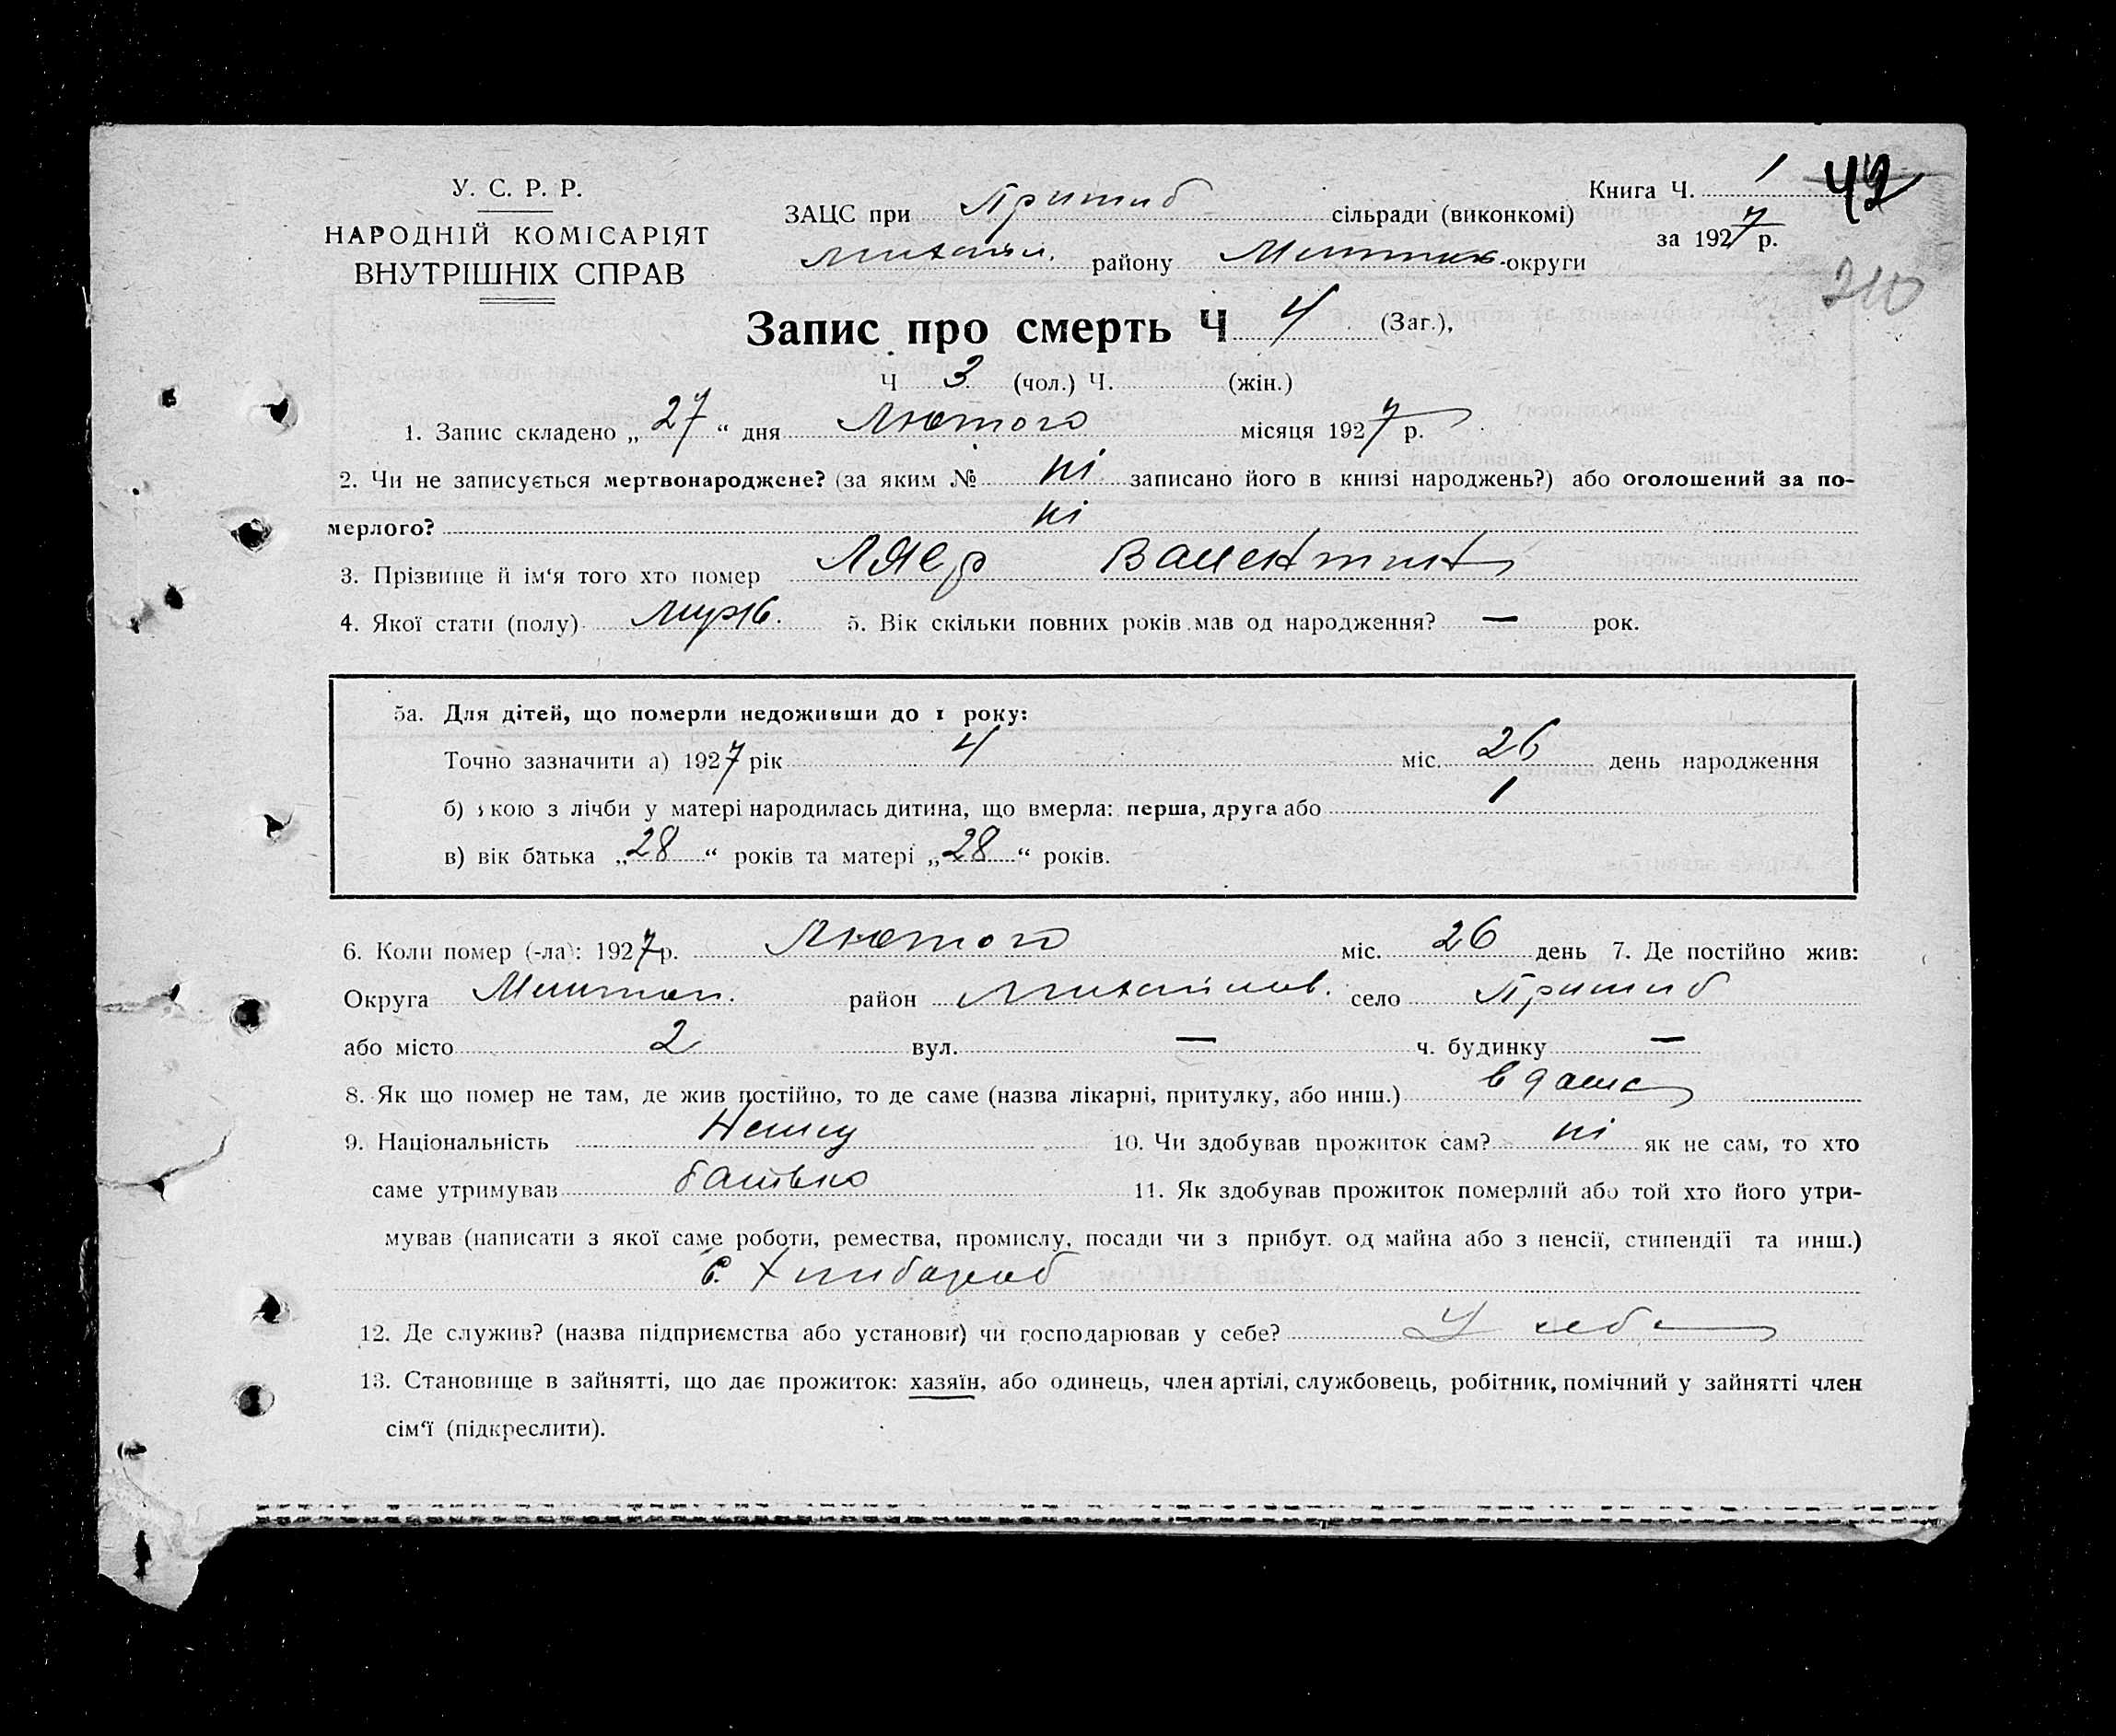 У. С. Р. Р.
НАРОДНІЙ КОМІСАРІЯТ
ВНУТРІШНІХ СПРАВ
ЗАЦС при Пришиб сільради (виконкомі)
Михайл. району округи
Книга Ч. 1 42
за 1927 р.
210
Запис про смерть Ч 4 (Заг.),
Ч 3 (чол.) Ч. (жін.)
1. Запис складено „27“ дня Лютого місяця 1927 р.
2. Чи не записується мертвонароджене? (за яким № ні записано його в книзі народжень?) або оголошений за по-
мерлого? ні
3. Прізвище й ім‘я того хто помер Ляер Валентин
4. Якої стати (полу) мужб. 5. Вік скільки повних років мав од народження? — рок.
5а. Для дітей, що померли недоживши до 1 року:
Точно зазначити а) 1927 рік 4 міс. 26 день народження
б) якою з лічби у матері народилась дитина, що вмерла: перша, друга або 1
в) вік батька „28“ років та матері „28“ років.
6. Коли помер (-ла): 1927 р. Лютого міс. 26 день 7. Де постійно жив:
Округа район Михайлов. село Пришиб
або місто 2 вул. — ч. будинку —
8. Як що помер не там, де жив постійно, то де саме (назва лікарні, притулку, або инш.) вдома
9. Національність Немец 10. Чи здобував прожиток сам? ні як не сам, то хто
саме утримував батько 11. Як здобував прожиток померлий або той хто його утри-
мував (написати з якої саме роботи, ремества, промислу, посади чи з прибут. од майна або з пенсії, стипендії та инш.)
Хлибороб
12. Де служив? (назва підприємства або установи) чи господарював у себе? У себе
13. Становище в зайнятті, що дає прожиток: хазяїн, або одинець, член артілі, службовець, робітник, помічний у зайнятті член
сім‘ї (підкреслити).